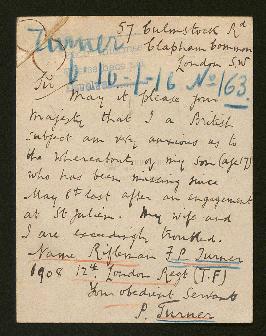 57 Culmstock Rd
Clapham Common
London S.W
Turner
10-7-16 No 163.
Sir
May it please your
Majesty that I a British
subject am very anxious as to
the whereabouts of my Son (age 17)
who has been missing since
May 6th last after an engagement
at St Julien. My wife and
I are exceedingly troubled.
Name Rifleman F.P. Turner
1908 12th London Regt (T.F)
Your obedient Servant
P. Turner